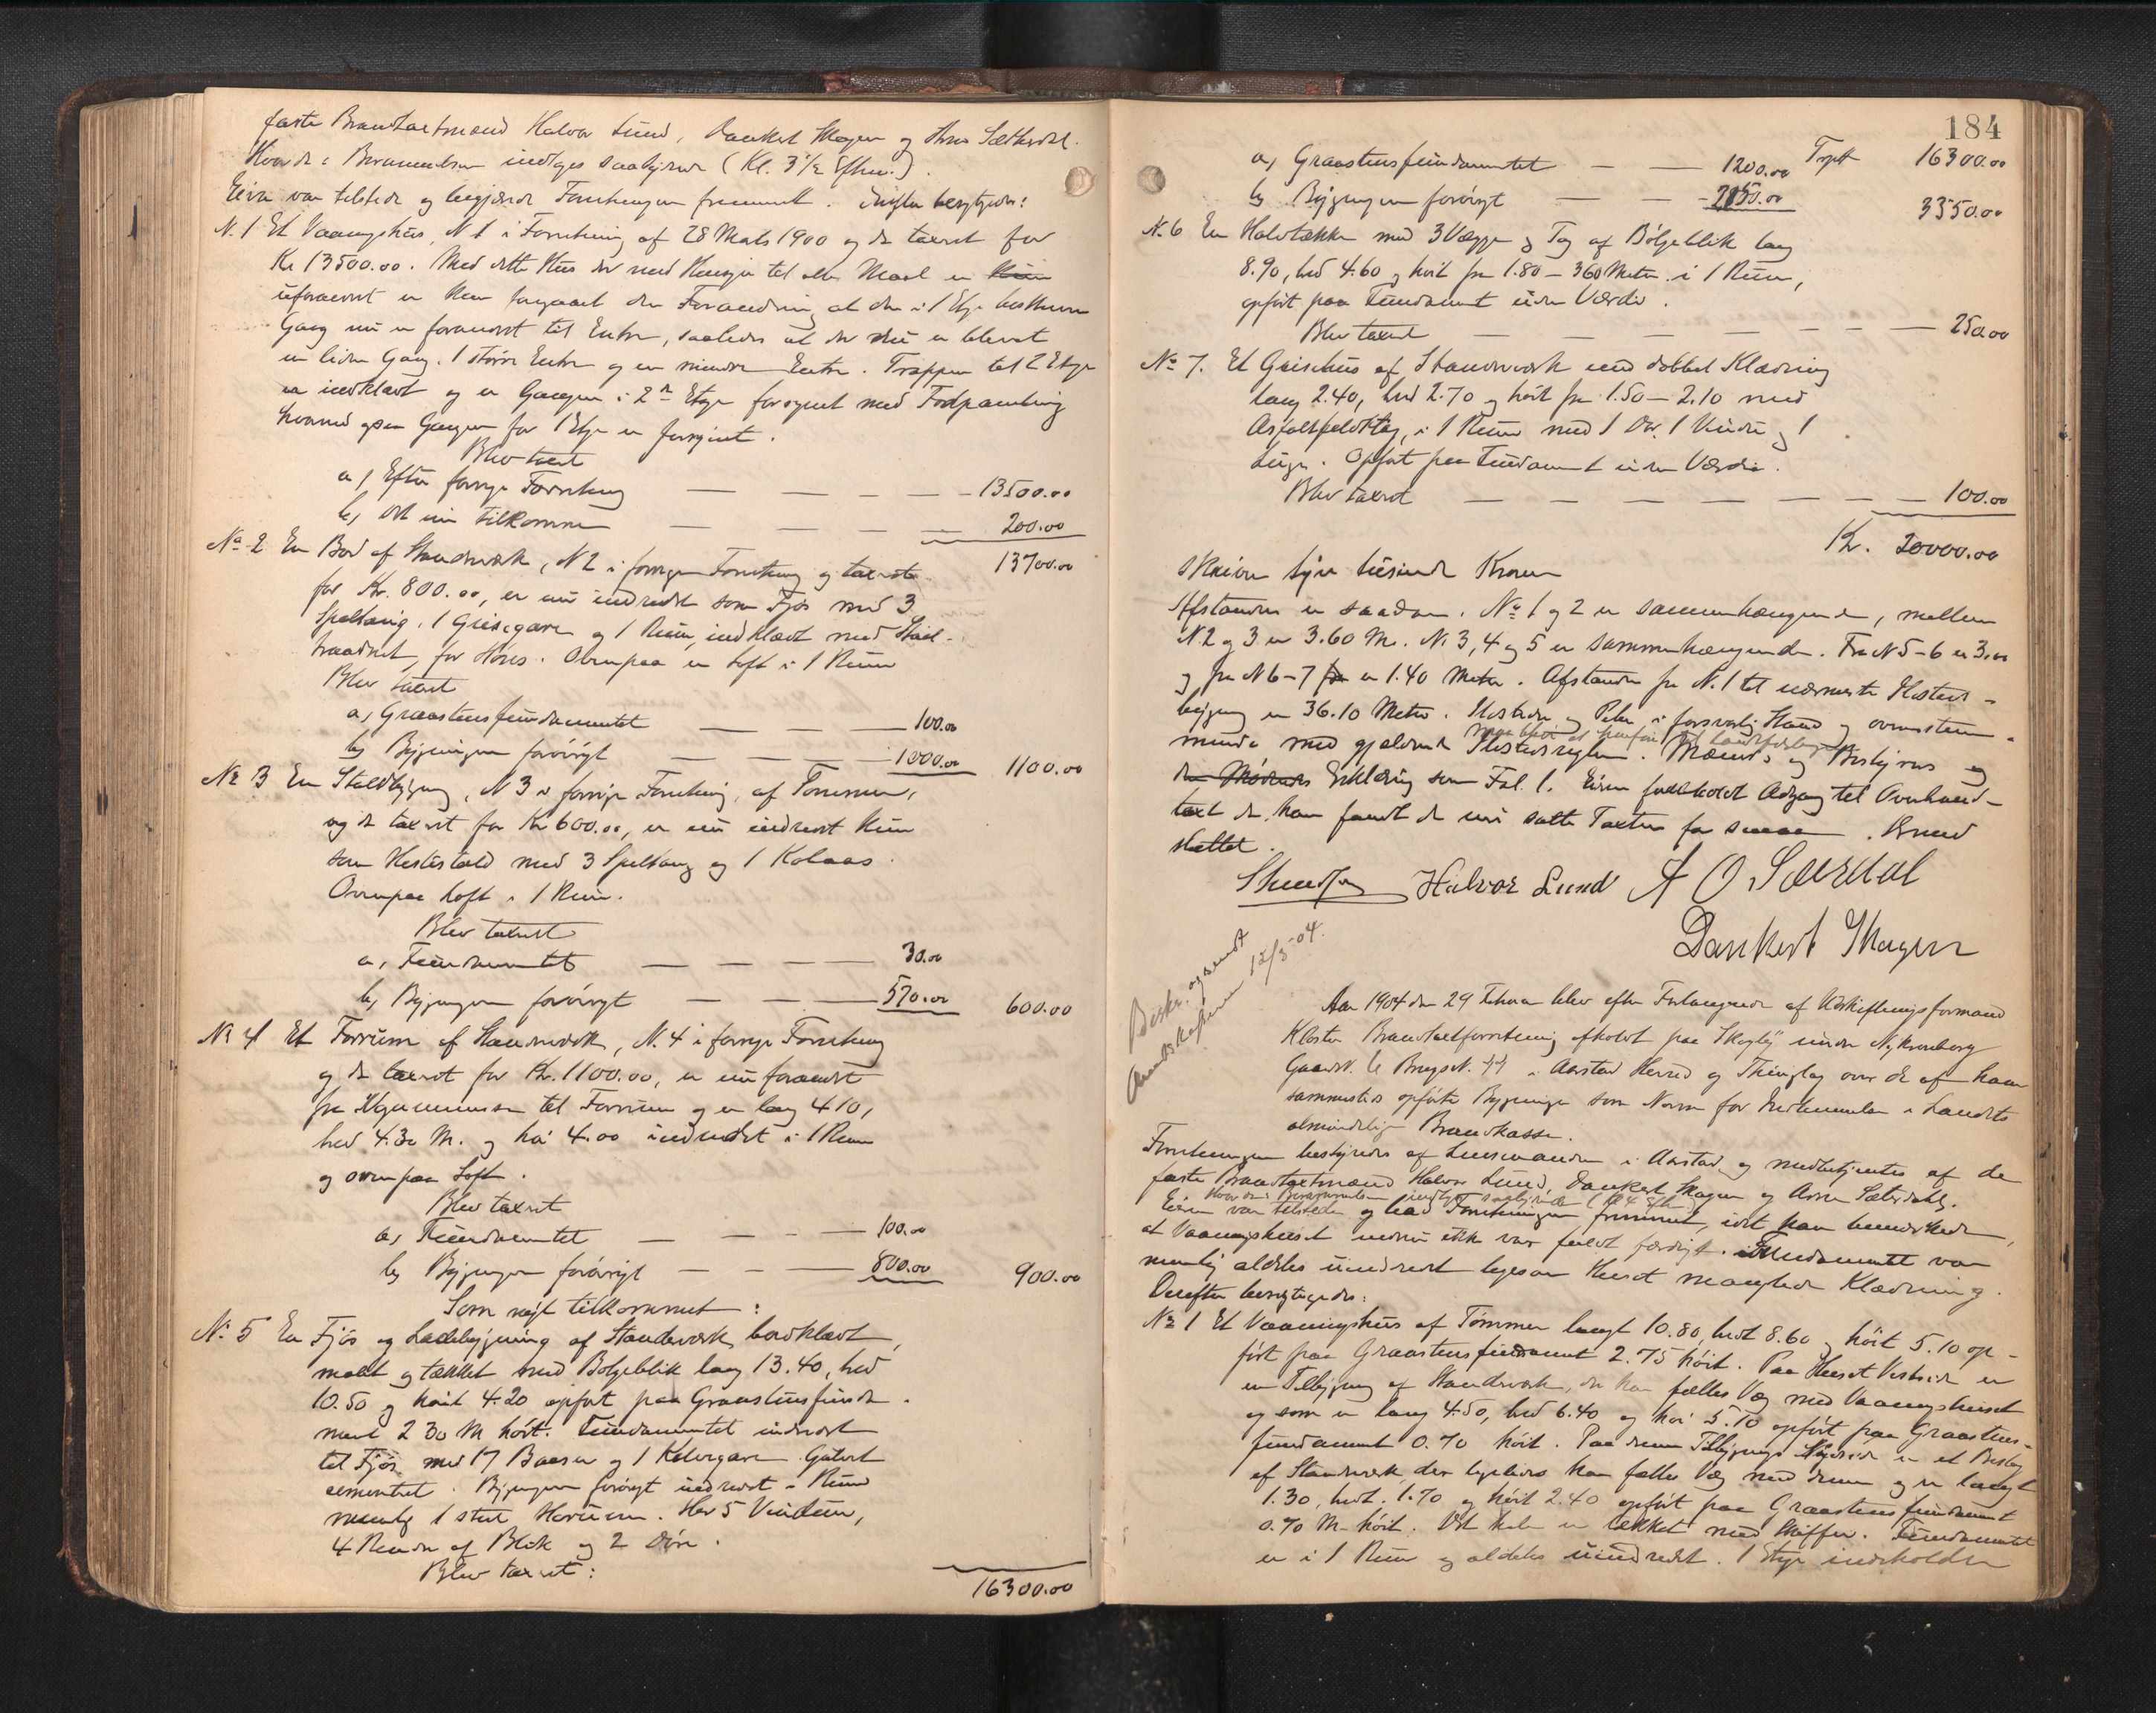 faste Brandtaxtmænd Halvor Lund, Dankert Skagen og Arne Sæterdal.
Hvorda i Berammelsen indtages saalydende (Kl. 3 1/2 Efterm.).
Eieren var tilstede og begjærede Forretningen fremmet. Derefter besigtigedes:
N. 1 Et Vaaningshus, N 1 i Forretning af 28 Marts 1900 og da taxeret for
Kr 13500.00. Med dette Hus der med Hensyn til alle Maal er
uforandret er kun foregaaet den Forandring at den i 1 Etge
Gang nu er forandret til Entre, saaledes at der nu er blevet
en liden Gang, 1 større Entre og en mindre Entre. Trappen til 2 Etge
er indklædt og er Gangen i 2n Etge forsynet med Fodpanling
hvormed ogsaa Gangen for 1 Etge er forsynet.
Blev taxeret
a, Efter forrige Forretning — — — — 13500.00
b, Det nu tilkomne — — — — 200.00
13700.00
No 2 En Bod af Standværk, N 2 i forrige Forretning og taxeret
for Kr. 800.00, er nu indredet som Fjøs med 3
Speltaug, 1 Grisegare og 1 Rum, indklædt med Staal-
traadnet, for Høns. Ovenpaa er Loft i 1 Rum
Blev taxeret
a, Graastensfundamentet — — — 100.00
b, Bygningen forøvrigt — — — 1000.00 1100.00
No 3 En Staldbygning, N 3 i forrige Forretning, af Tømmer,
og da taxeret for Kr 600.00, er nu indredet
som Hestestald med 3 Speltaug og 1 Kobaas.
Ovenpaa Loft i 1 Rum.
Blev taxeret
a, Fundamentet — — — — 30.00
b, Bygningen forøvrigt — — — 570.00 600.00
No 4 Et Forrum af Standværk, N. 4 i forrige Forretning
og da taxeret for Kr. 1100.00, er nu forandret
fra til Forrum og er lang 4.10,
bred 4.30 M. og høi 4.00 indredet i 1 Rum
og ovenpaa Loft.
Blev taxeret
a, Fundamentet — — — — 100.00
b, Bygningen forøvrigt — — — 800.00 900.00
Som nyt tilkommet:
No 5 En Fjøs og Ladebygning af Standværk, bordklædt,
malt og tækket med Bølgeblik lang 13.40, bred
10.50 og høit 4.20 opført paa Graastensfunda-
ment 2.30 M høit. Fundamentet indredet
til Fjøs med 17 Baaser og 1 Kalvegare. Gulvet
cementeret. Bygningen forøvrigt indredet i Rum
nemlig 1 stort Hørum. Har 5 Vinduer,
4 Render af Blik og 2 Døre.
Blev taxeret:
16300.00
184
Trpt 16300.00
a, Graastensfundamentet — — 1200.00
b, Bygningen forøvrigt — — 2150.00 3350.00
No 6 En Halvtække med 3 Vægge og Tag af Bølgeblik lang
8.90, bred 4.60 og høit fra 1.80 – 3.60 Meter i 1 Rum,
opført paa Fundament uden Værdi.
Blev taxeret — — — — — — 250.00
No 7. Et Grisehus af Standværk med dobbel Klædning
lang 2.40, bred 2.70 og høit fra 1.50 – 2.10 med
Asfaltfeldttag, i 1 Rum med 1 Dør, 1 Vindu og 1
Luge. Opført paa Fundament uden Værdi.
Blev taxeret — — — — — — 100.00
Kr. 20000.00
skriver tyve tusinde Kroner
Afstanden er saadan. No 1 og 2 er sammenhængende, mellem
N 2 og 3 er 3.60 M. N. 3, 4 og 5 er sammenhængende. Fra N 5–6 er 3.00
og fra N 6–7 er 1.40 Meter. Afstanden fra N. 1 til nærmeste Ildsteds-
bygning er 36.10 Meter. Ildsteder og Piber i forsvarlig Stand og overensstem-
mende med gjældende Ildstedsregler. Mænds og Bestyrers og
Erklæring som Fol. 1. Eieren forbeholdt Adgang til Overhaand-
taxt da han fandt de nu satte Taxter for smaa. Brand
sluttet.
Halvor Lund A O. Sæterdal
Dankert Skagen
Beskr. og sendt
12/3 04.
Aar 1904 den 29 Februar blev efter Forlangende af Udskiftningsformand
Kloster Brandtaxtforretning afholdt paa "Skoglÿ" under Ny Kronborg
Gaards. 6 Brugsn. 44 i Aarstad Herred og Thinglag over de af ham
sammesteds opførte Bygninger som Norm for Indlemmelse i Landets
almindelige Brandkasse.
Forretningen bestyredes af Lensmanden i Aarstad og medbetjentes af de
faste Brandtaxtmænd Halvor Lund, Dankert Skagen og Arne Sæterdahl.
Hvorda i Berammelsen indtages saalydende (Kl 4 Efterm.)
Eieren var tilstede og bad Forretningen fremmet, idet han bemærkede,
at Vaaningshuset endnu ikke var fuldt færdigt. Fundamentet var
nemlig aldeles uindredet ligesom Huset manglede Klædning.
Derefter besigtigedes:
No 1 Et Vaaningshus af Tømmer langt 10.80, bredt 8.60 og høit 5.10 op-
ført paa Graastensfundament 2.75 høit. Paa Huset Vestside er
en Tilbygning af Standværk, der har fælles Væg med Vaaningshuset
og som er lang 4.50, bred 6.40 og høi 5.10 opført paa Graastens-
fundament 0.70 høit. Paa denne Tilbygnings Sydside er et Bislag
af Standværk, der ligeledes har fælles Væg med denne og er langt
1.30, bredt 1.70 og høit 2.40 opført paa Graastensfundament
0.70 M høit. Det hele er tækket med Skiffer. Fundamentet
er i 1 Rum og aldeles uindredet. 1 Etge indeholder